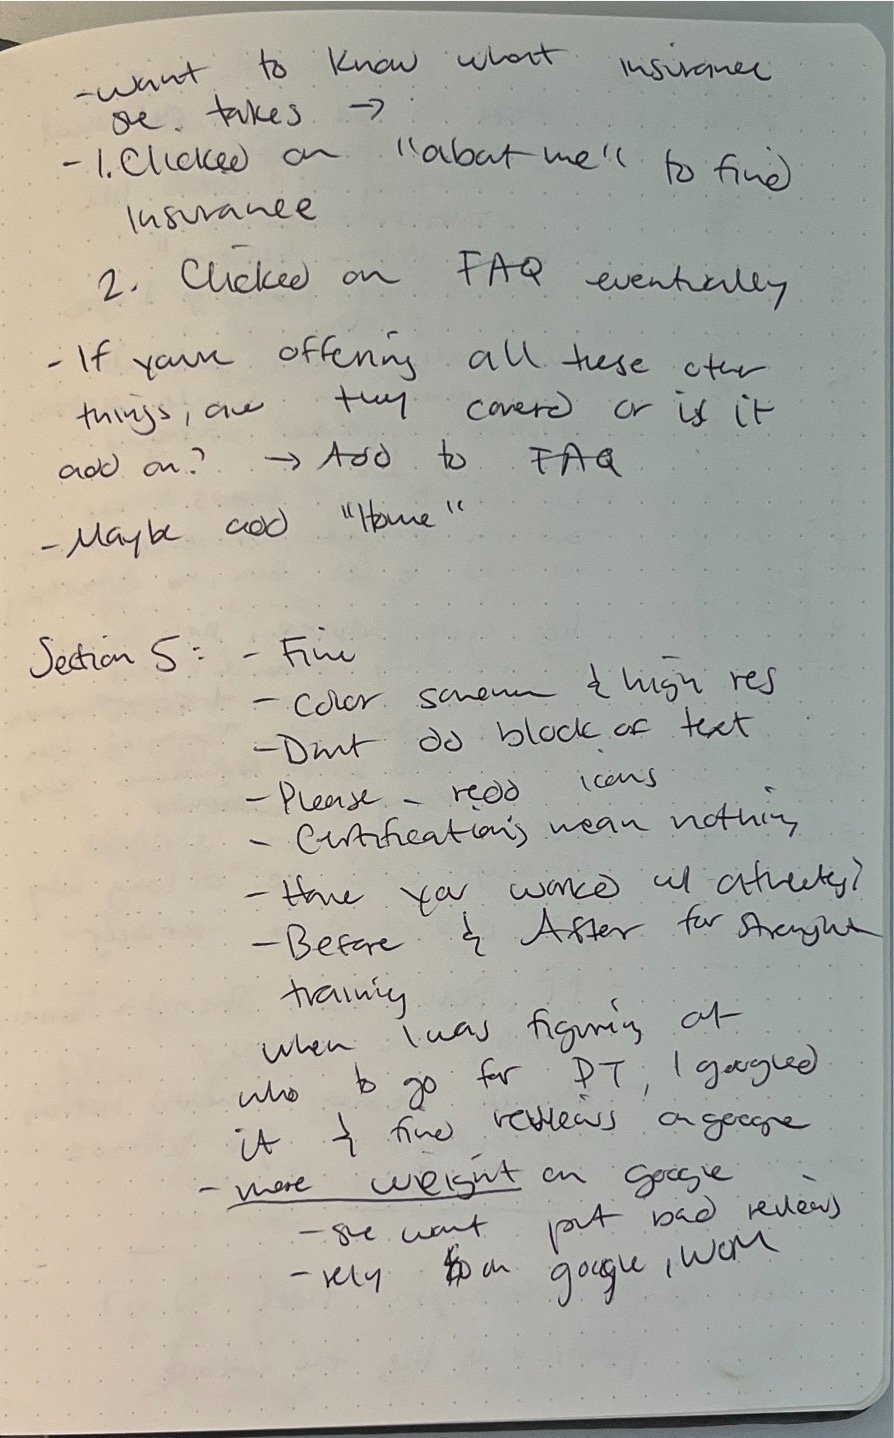 - Want to know what insurance
she takes →
- 1. Clicked on "about me" to find
insurance
2. Clicked on FAQ eventually
- If you're offering all these other
things, are they covered or is it
add on? → Add to FAQ
- Maybe add "Home"
Section 5: - Fine
- Color scheme & high res
- Don't do block of text
- Please - redo icons
- Certifications mean nothing
- Have you worked w/ athletes?
- Before & After for strength
training
When I was figuring out
who to go for PT, I googled
it & find reviews on google
- more weight on google
- she won't put bad reviews
- rely on google, WOM